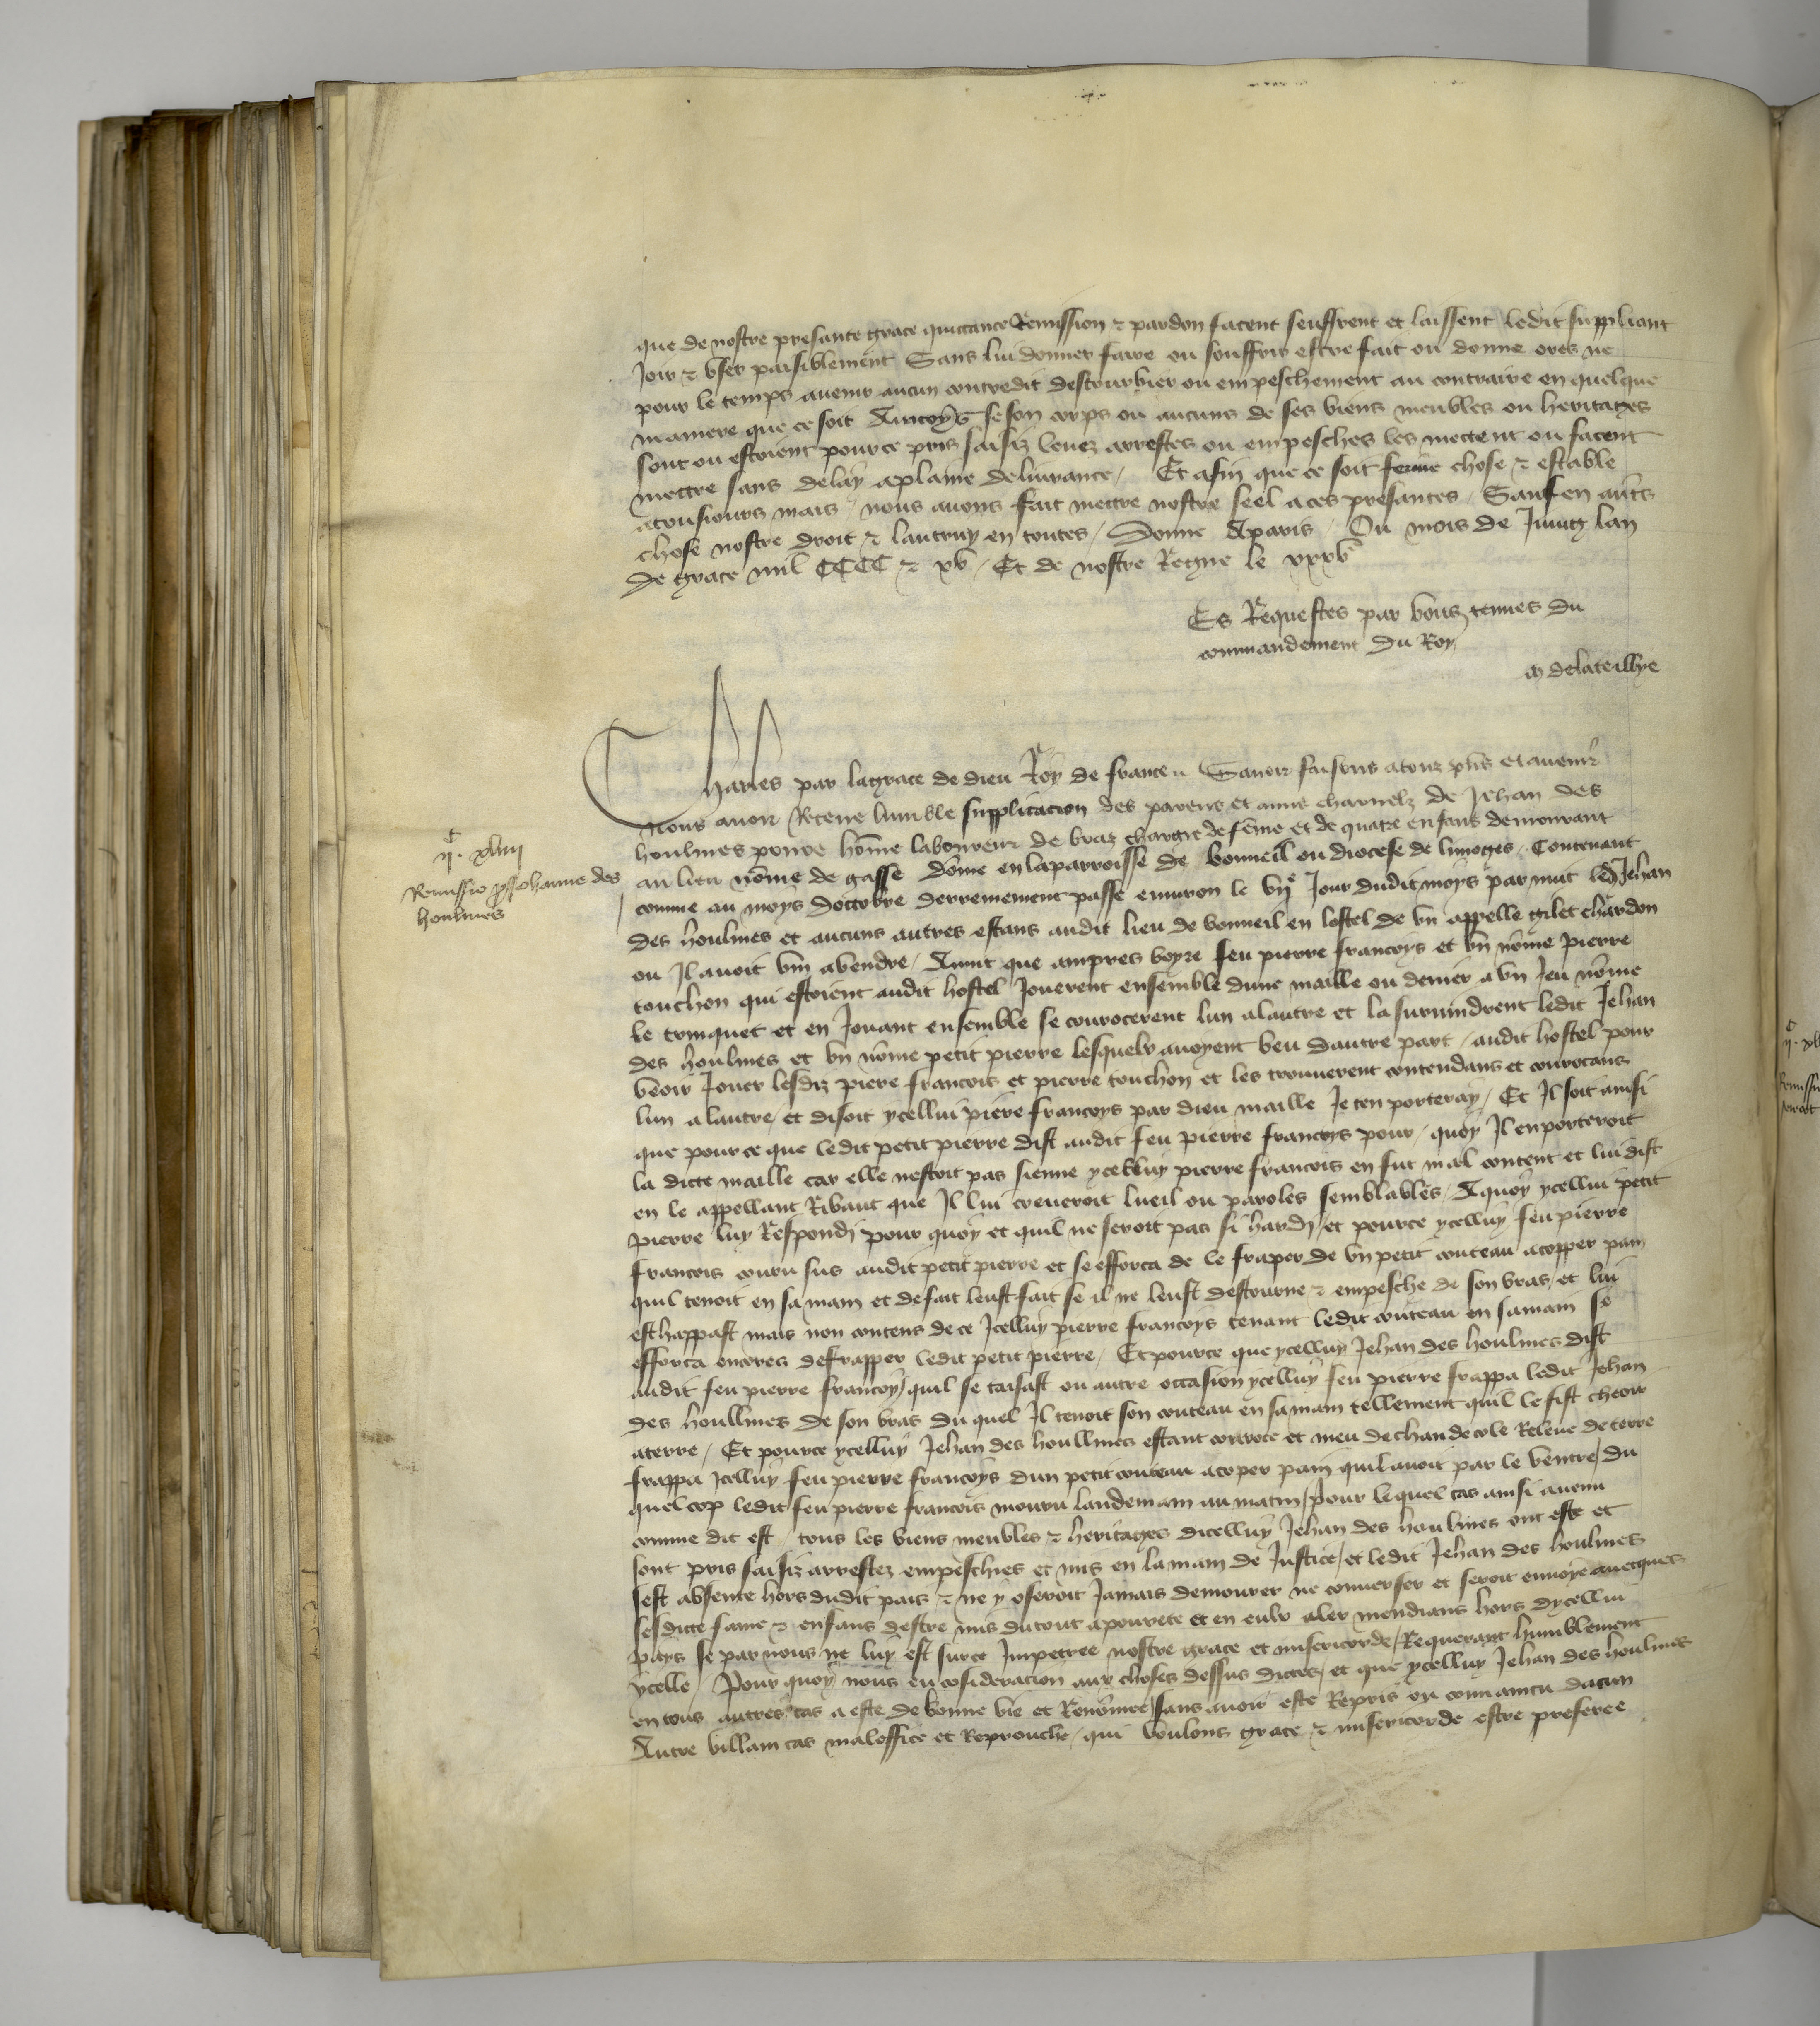 que de nostre presante grace quittance Remission & pardon facent seuffrent et laissent ledit suppliant
Joir & vser paisiblement Sans lui donner faire ou souffrir estre fait ou donne ores ne
pour le temps auenir aucun contredit destourbier ou empeschement au contraire en quelque
maniere que ce soit Aincoys se son corps ou aucuns de ses biens meubles ou heritages
sont ou estoient pource pris saisiz leuez arrestes ou empesches les mettent ou facent
mettre sans delay aplaine deliurance / Et afin que ce soit ferme chose & estable
atousiours mais / nous auons fait mettre nostre seel a ces presantes / Sauf en autres
chose nostre droit & lautruy en toutes / Donne Aparis / Ou mois de Juing lan
de grace mil CCCC & xv / Et de nostre Regne le xxxve
Es Requestes par vous tenues du
commandement du Roy
delateillye
Charles par lagrace de dieu Roy de france Sauoir faisons atous pns et auenir
nous auoir Receue lumble supplicacion des parens et amis charnelz de Jehan des
houlmes poure home laboureur de braz chargie de feme et de quatre enfans demourant
IIc xliiii
au lieu nome de gasse dome en laparroisse de bonneil ou diocese de limoges / Contenant
Remissio pro Johanne des
houlmes
comme au moys doctobre derrenement passe enuiron le vije Jour dudit moys par nuit led Jehan
des houlmes et aucuns autres estans audit lieu de bonneil en lostel de vn appelle gilet chardon
ou Il auoit vin abendre / Auint que ampres boyre feu pierre francoys et vn nome pierre
touchon qui estoient audit hostel Jouerent ensemble dune maille ou denier a vn Jeu nome
le trinquet et en Jouant ensemble se courocerent lun alautre et la suruindrent ledit Jehan
des houlmes et vn nome petit pierre lesquelx auoyent beu dautre part / audit hostel pour
veoir Jouer lesdiz piere francois et pierre touchon et les trouuerent contendans et courocans
lun alautre / et disoit ycellui piere francoys par dieu maille Je ten porteray / Et Il soit ainsi
que pour ce que ledit petit pierre dist audit feu pierre francoys pour / quoy Il enporteroit
la dicte maille car elle nestoit pas sienne ycelluy pierre francois en fut mal content et lui dist
en le appellant Ribaut que Il lui creueroit lueil ou paroles semblables / Aquoy ycellui petit
pierre luy Respondi pour quoy et quil ne seroit pas si hardi / et pource ycelluy feu pierre
francois couru sus audit petit pierre et se efforca de le fraper de vn petit couteau acopper pain
quil tenoit en sa main et de fait leust fait se il ne leust destourne & empesche de son bras / et lui
esthappast mais non contens de ce Icelluy pierre francoys tenant ledit couteau en samain se
efforca encores defrapper ledit petit pierre / Et pource que ycelluy Jehan des houlmes dist
audit feu pierre francoys / quil se taisast ou autre occasion ycelluy feu pierre frappa ledit Jehan
des houllmes de son bras du quel Il tenoit son couteau en sa main tellement quil le fist cheoir
aterre / Et pource ycelluy Jehan des houllmes estant corroce et meu de chaudecole Releue de terre
frappa Icelluy feu pierre francoys dun petit couteau acoper pain quil auoit par le ventre / du
quel cop ledit feu pierre francois mouru landemain au matin / pour lequel cas ainsi auenu
comme dit est / tous les biens meubles & heritages dicelluy Jehan des houlmes ont este et
sont pris saisiz arrestez empeschies et mis en la main de Justice / et ledit Jehan des houlmes
sest absente hors dudit pais & ne y oseroit Jamais demourer ne conuerser et seroit enuoye auecques
sesdicte fame & enfans destre mis dutout apourete et en eulx aler mendians hors dycellui
pays se par nous ne luy est surce Impetree nostre grace et misericorde / Requerant humblement
ycelle / Pour quoy nous eu consideracion aux choses dessus dictes / et que ycelluy Jehan des houlmes
en tous autres cas a este de bonne vie et Renommee / sans auoir este Repris ou conuaincu dacun
Autre villain cas maloffice et Reprouche / qui voulons grace & misericorde estre preferee